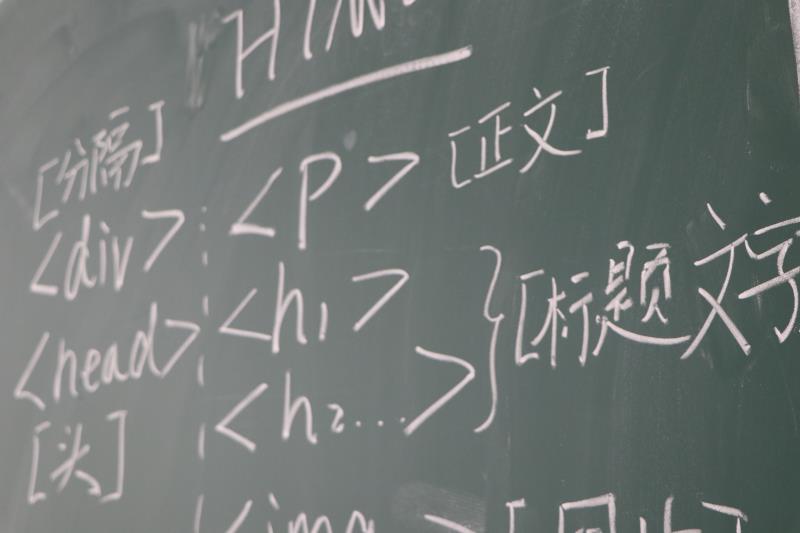 HTML
[分隔]
<div>
<head>
[头]
<p> [正文]
<h1>
<h2...>
[标题文字
<img>